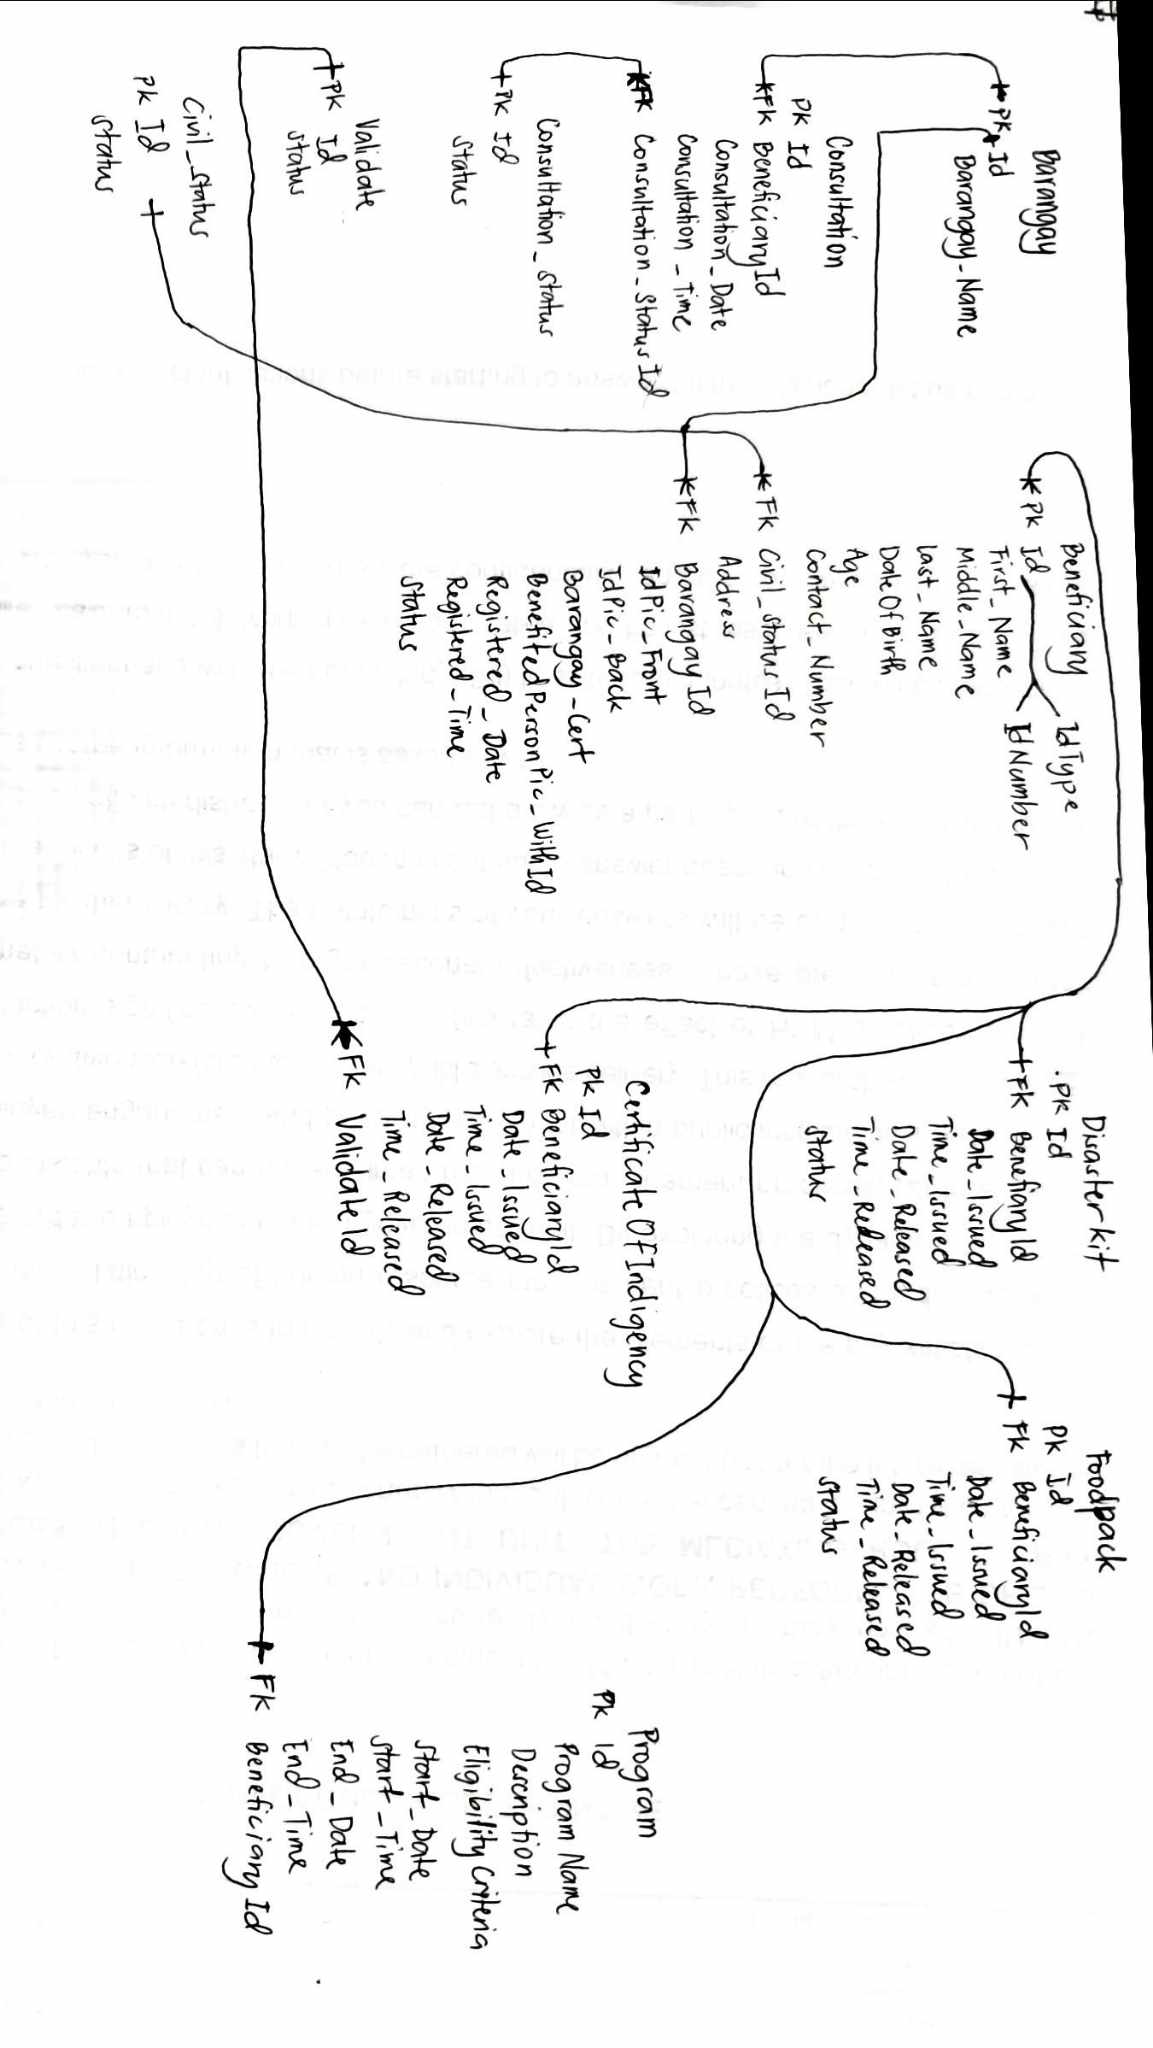 Barangay
PK Id
Barangay_Name
Consultation
PK Id
FK BeneficiaryId
Consultation_Date
Consultation_Time
FK Consultation_StatusId
Consultation_Status
PK Id
Status
Validate
PK Id
Status
Civil_Status
PK Id
Status
Beneficiary
PK Id
IdType
IdNumber
First_Name
Middle_Name
Last_Name
DateOfBirth
Age
Contact_Number
FK Civil_StatusId
Address
FK BarangayId
IdPic_Front
IdPic_Back
Barangay_Cert
BenefitedPersonPic_WithId
Registered_Date
Registered_Time
Status
Disaster kit
PK Id
FK BenefiaryId
Date_Issued
Time_Issued
Date_Released
Time_Redeased
Status
Foodpack
PK Id
FK BeneficiaryId
Date_Issued
Time_Issued
Date_Released
Time_Released
Status
CertificateOfIndigency
PK Id
FK BeneficiaryId
Date_Issued
Time_Issued
Date_Released
Time_Released
FK ValidateId
Program
PK Id
Program Name
Description
Eligibility Criteria
Start_Date
Start_Time
End_Date
End_Time
FK Beneficiary Id